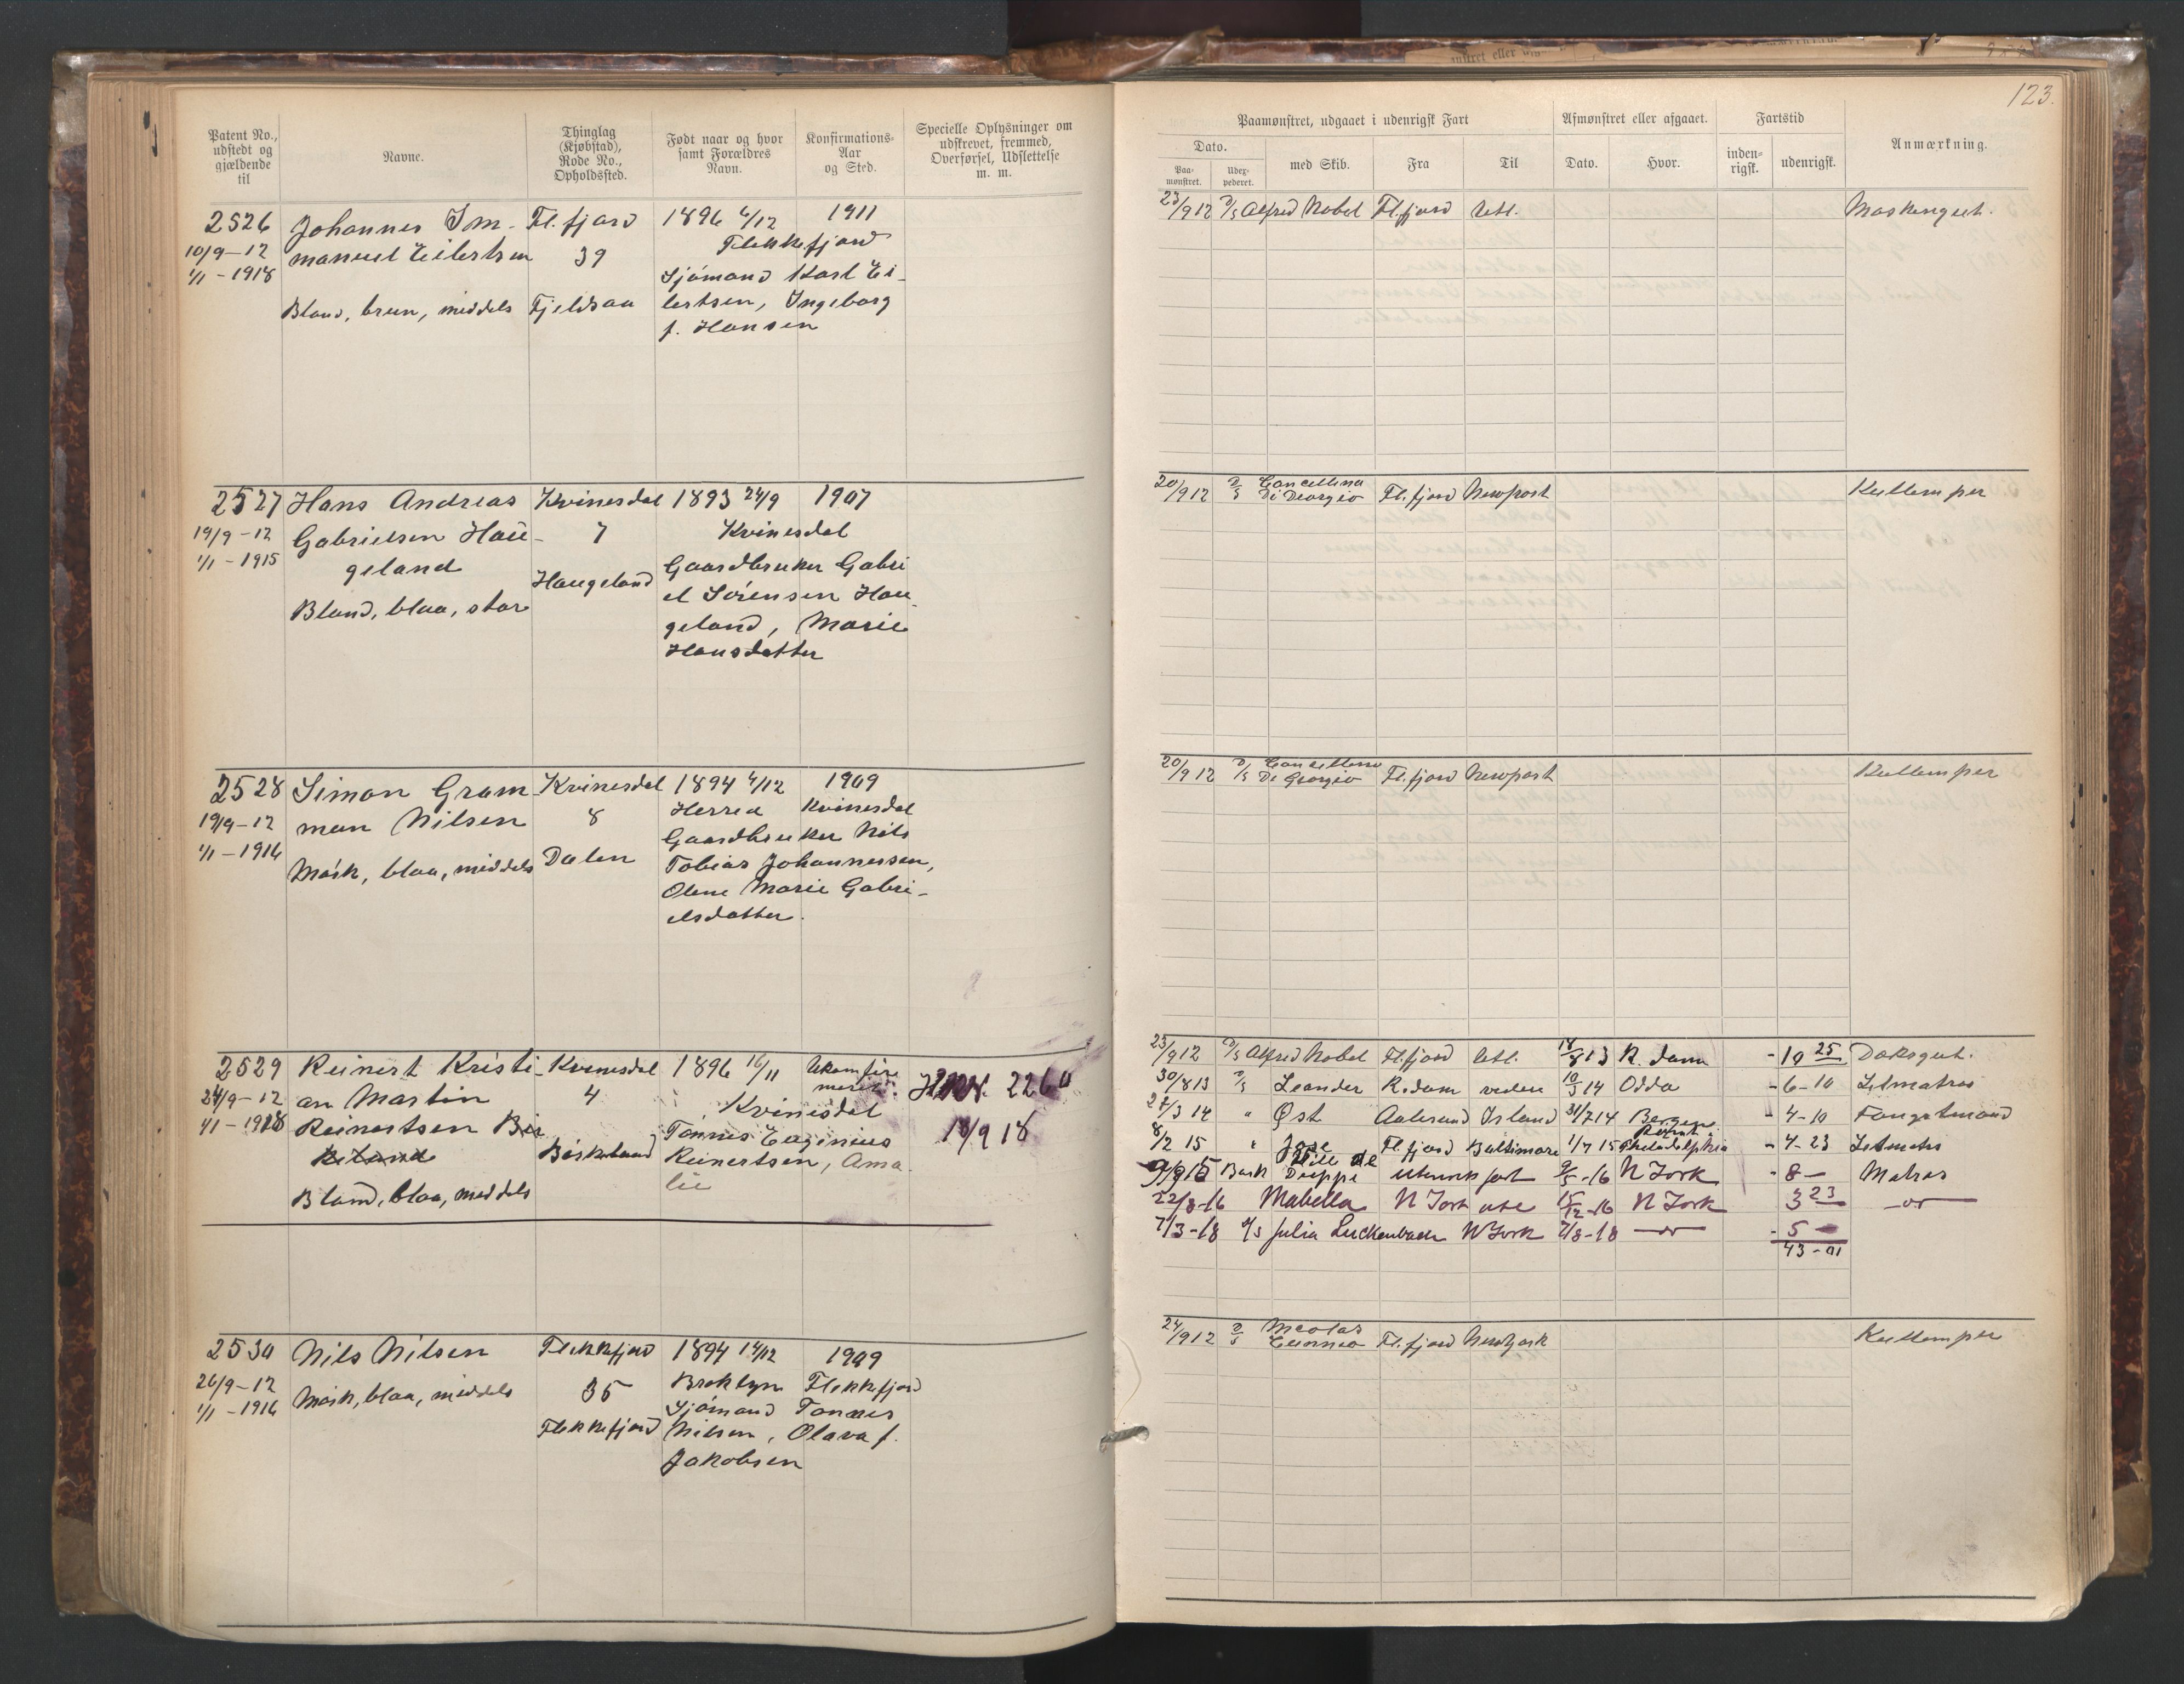 123.
Patent No., udstedt og gjældende til
Navne.
Thinglag (Kjøbstad), Rode No., Opholdssted.
Født naar og hvor samt Forældres Navn.
Konfirmations-Aar og Sted.
Specielle Oplysninger om udskrevet, fremmed, Overførsel, Udslettelse m. m.
Paamønstret, udgaaet i udenrigsk Fart
Afmønstret eller afgaaet.
Fartstid
Anmærkning.
Dato.
Paa-mønstret.
Udex-pederet.
med Skib.
Fra
Til
Dato.
Hvor.
inden-rigsk.
udenrigsk.
2526 Johannes Im- Fl.fjord 1896 6/12 1911
10/9-12 manuel Eilertsen 39 Flekkefjord
1/1-1918 Sjømand Karl Ei-
Blond, brun, middels Fjeldsaa lertsen, Ingeborg
f. Hansen
23/9 12 D/S Alfred Nobel Fl.fjord Maskingut.
2527 Hans Andreas Kvinesdal 1893 24/9 1907
19/9-12 Gabrielsen Hau- 7 Kvinesdal
1/1-1915 geland Gaardbruker Gabri
Haugeland el Sørensen Hau-
Blond, blaa, stor geland, Marie
Hansdatter
20/9 12 D/S Di Georgio Fl.fjord Newport Kullemper
2528 Simon Gram- Kvinesdal 1894 6/12 1909
19/9-12 man Nilsen 8 Herred Kvinesdal
1/1-1916 Gaardbruker Nils
Mørk, blaa, middels Dalen Tobias Johannessen,
Olene Marie Gabri-
elsdatter.
20/9 12 D/S Di Georgio Fl.fjord Newport Kullemper
2529 Reinert Kristi- Kvinesdal 1896 16/11 Ukonfir
24/9-12 an Martin 4 mert.
1/1-1918 Reinertsen Kvinesdal
Tønnes Euginius
Reinertsen, Ama
lie
Blond, blaa, middels
2260
18/9 18
23/9 12 D/S Alfred Nobel Fl.fjord 18/8 13 R.dam -10 25 Dæksgut.
30/8 13 D/S Leander R.dam 10/3 14 Odda -6-10 Letmatros
27/3 14 " Øst Aalesund Island 31/7 14 Bergen -4-10 Fangstmand
8/2 15 " Fl.fjord Baltimore 1/7 15 Philadelphia -4-23 Letmatrs
9/9 15 Bark Ville de Dieppe 9/5-16 N York -8- Matros
22/8-16 Mabella N York ute 15/12-16 N York 3 23 -or-
7/3-18 D/S Julia Luckenbach N York 7/8-18 -or- -5-
43-01
2530 Nils Nilsen Flekkfjord 1894 14/12 1909
26/9-12 Mørk, blaa, middels 35 Broklyn Flekkefjord
1/1-1916 Sjømand Tønnes
Flekkefjord Nilsen, Olava f.
Jakobsen
24/9 12 D/S Nicolas Cuneo Fl.fjord NewYork Kullemper